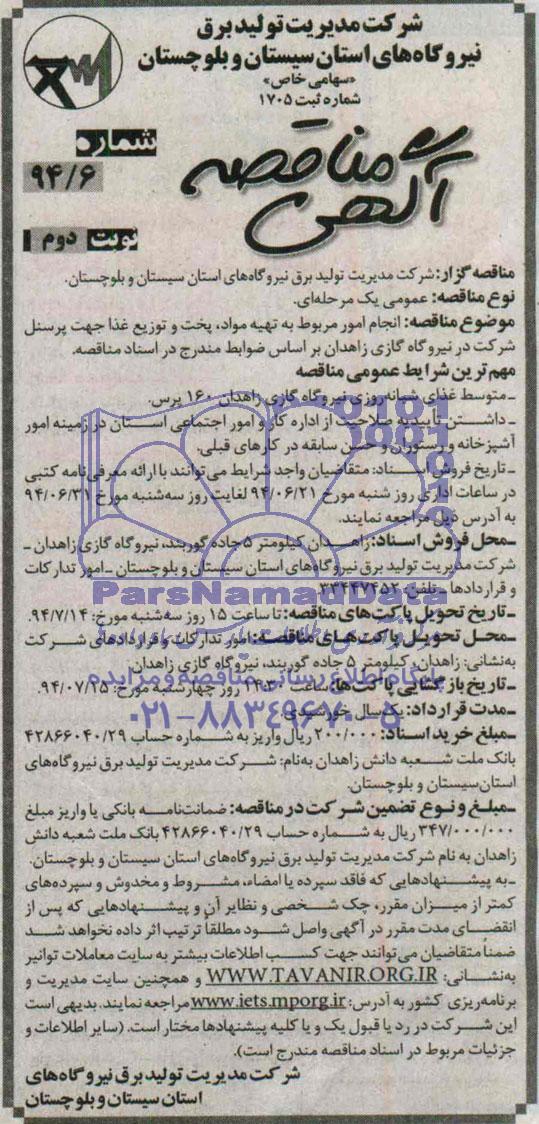 شرکت مدیریت تولید برق
نیروگاه‌های استان سیستان و بلوچستان
«سهامی خاص»
شماره ثبت ۱۷۰۵
آگهی مناقصه
شماره
۹۴/۶
نوبت دوم
مناقصه گزار: شرکت مدیریت تولید برق نیروگاه‌های استان سیستان و بلوچستان.
نوع مناقصه: عمومی یک مرحله‌ای.
موضوع مناقصه: انجام امور مربوط به تهیه مواد، پخت و توزیع غذا جهت پرسنل
شرکت در نیروگاه گازی زاهدان بر اساس ضوابط مندرج در اسناد مناقصه.
مهم ترین شرایط عمومی مناقصه
ـ متوسط غذای شبانه‌روزی نیروگاه گازی زاهدان ۱۶۰ پرس.
ـ داشتن تاییدیه صلاحیت از اداره کار و امور اجتماعی استان در زمینه امور
آشپزخانه و رستوران و حسن سابقه در کارهای قبلی.
ـ تاریخ فروش اسناد: متقاضیان واجد شرایط می‌توانند با ارائه معرفی‌نامه کتبی
در ساعات اداری روز شنبه مورخ ۹۴/۰۶/۲۱ لغایت روز سه‌شنبه مورخ ۹۴/۰۶/۳۱
به آدرس ذیل مراجعه نمایند.
ـ محل فروش اسناد: زاهدان کیلومتر ۵ جاده گوربند، نیروگاه گازی زاهدان ـ
شرکت مدیریت تولید برق نیروگاه‌های استان سیستان و بلوچستان ـ امور تدارکات
و قراردادها ـ تلفن: ۳۳۴۴۷۴۵۲
ـ تاریخ تحویل پاکت‌های مناقصه: تا ساعت ۱۵ روز سه‌شنبه مورخ: ۹۴/۷/۱۴.
ـ محل تحویل پاکت‌های مناقصه: امور تدارکات و قراردادهای شرکت
به‌نشانی: زاهدان، کیلومتر ۵ جاده گوربند، نیروگاه گازی زاهدان.
ـ تاریخ بازگشایی پاکت‌ها: ساعت ۱۴:۳۰ روز چهارشنبه مورخ: ۹۴/۰۷/۲۵.
ـ مدت قرارداد: یکسال خورشیدی.
ـ مبلغ خرید اسناد: ۲۰۰/۰۰۰ ریال واریز به شماره حساب ۴۲۸۶۶۰۴۰/۲۹
بانک ملت شعبه دانش زاهدان به‌نام: شرکت مدیریت تولید برق نیروگاه‌های
استان سیستان و بلوچستان.
ـ مبلغ و نوع تضمین شرکت در مناقصه: ضمانت‌نامه بانکی یا واریز مبلغ
۳۴۷/۰۰۰/۰۰۰ ریال به شماره حساب ۴۲۸۶۶۰۴۰/۲۹ بانک ملت شعبه دانش
زاهدان به نام شرکت مدیریت تولید برق نیروگاه‌های استان سیستان و بلوچستان.
ـ به پیشنهادهایی که فاقد سپرده یا امضاء، مشروط و مخدوش و سپرده‌های
کمتر از میزان مقرر، چک شخصی و نظایر آن و پیشنهادهایی که پس از
انقضای مدت مقرر در آگهی واصل شود مطلقاً ترتیب اثر داده نخواهد شد
ضمناً متقاضیان می‌توانند جهت کسب اطلاعات بیشتر به سایت معاملات توانیر
به‌نشانی: WWW.TAVANIR.ORG.IR و همچنین سایت مدیریت و
برنامه‌ریزی کشور به آدرس: www.iets.mporg.ir مراجعه نمایند. بدیهی است
این شرکت در رد یا قبول یک و یا کلیه پیشنهادها مختار است. (سایر اطلاعات و
جزئیات مربوط در اسناد مناقصه مندرج است).
شرکت مدیریت تولید برق نیروگاه‌های
استان سیستان و بلوچستان
ParsNamadData
پایگاه اطلاع رسانی مناقصه و مزایده
۰۲۱-۸۸۳۴۹۶۷۰-۵